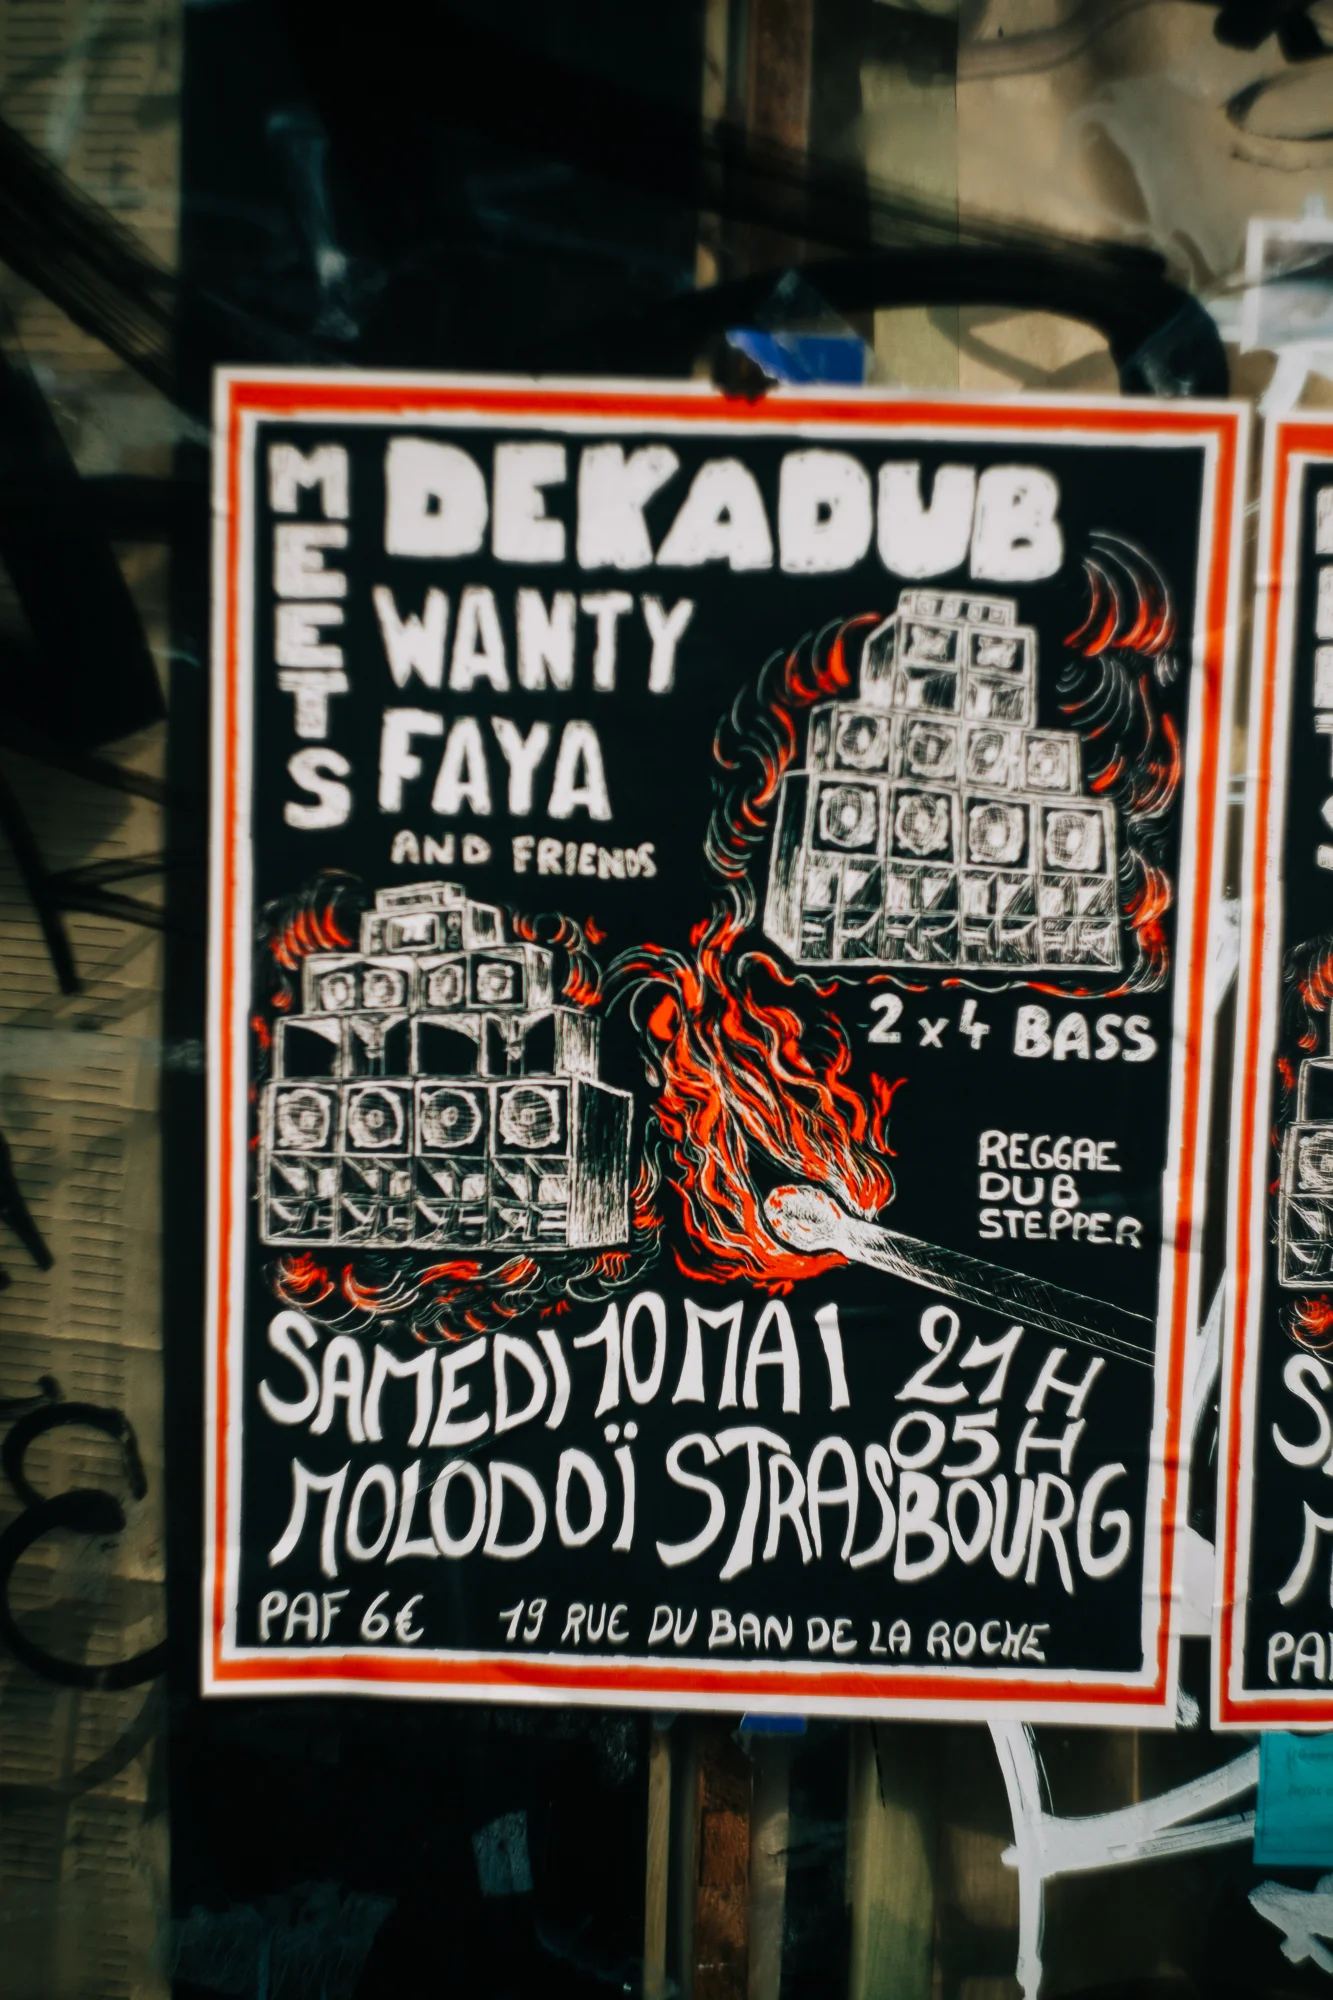 MEETS
DEKADUB
WANTY
FAYA
AND FRIENDS
2 x 4 BASS
REGGAE
DUB
STEPPER
SAMEDI 10 MAI 21H
05H
MOLODOÏ STRASBOURG
PAF 6€ 19 RUE DU BAN DE LA ROCHE